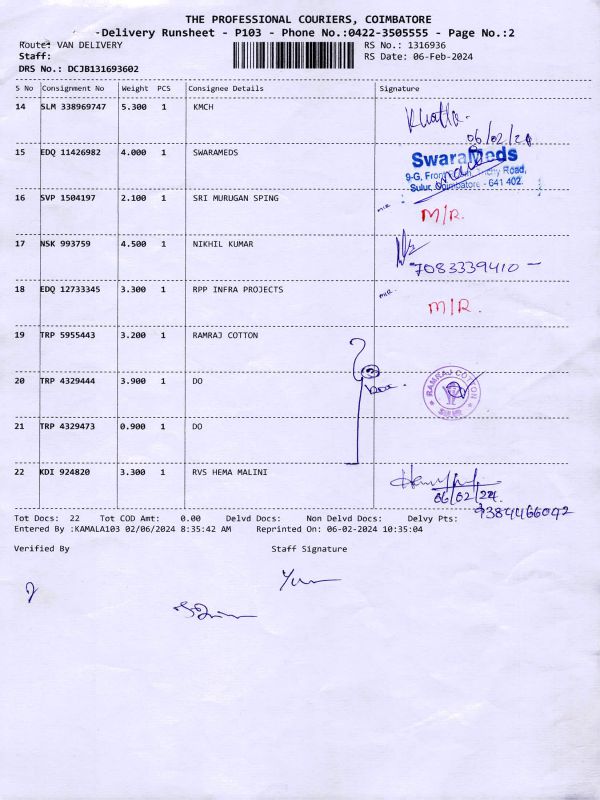 THE PROFESSIONAL COURIERS, COIMBATORE
-Delivery Runsheet - P103 - Phone No.:0422-3505555 - Page No.:2
Route: VAN DELIVERY
RS No.: 1316936
Staff:
RS Date: 06-Feb-2024
DRS No.: DCJB131693602
S No Consignment No Weight PCS Consignee Details Signature
14 SLM 338969747 5.300 1 KMCH
06/02/24
15 EDQ 11426982 4.000 1 SWARAMEDS
SwaraMeds
9-G, Road,
Sulur, Coimbatore - 641 402.
16 SVP 1504197 2.100 1 SRI MURUGAN SPING M/R M/R.
17 NSK 993759 4.500 1 NIKHIL KUMAR
7083339410 -
18 EDQ 12733345 3.300 1 RPP INFRA PROJECTS M/R M/R.
19 TRP 5955443 3.200 1 RAMRAJ COTTON
20 TRP 4329444 3.900 1 DO
RAMRAJ COTTON
SULUR
21 TRP 4329473 0.900 1 DO
22 KDI 924820 3.300 1 RVS HEMA MALINI
06/02/24.
9384466092
Tot Docs: 22 Tot COD Amt: 0.00 Delvd Docs: Non Delvd Docs: Delvy Pts:
Entered By :KAMALA103 02/06/2024 8:35:42 AM Reprinted On: 06-02-2024 10:35:04
Verified By Staff Signature